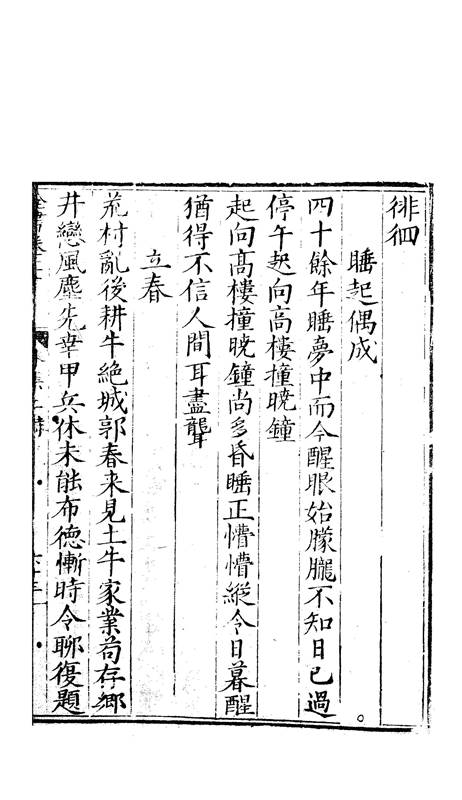 徘徊
睡起偶成
四十餘年睡夢中而今醒眼始朦朧不知日已過
停午起向高樓撞曉鐘
起向高樓撞曉鐘尚多昏睡正懵懵縱令日暮醒
猶得不信人間耳盡聾
立春
荒村亂後耕牛絕城郭春来見土牛家業苟存鄉
井戀風塵先幸甲兵休未能布德慚時令聊復題